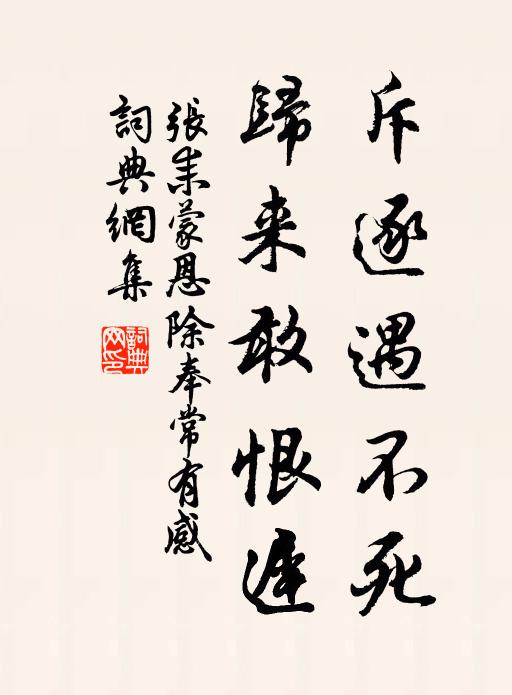 斥逐遇不死
歸来敢恨遲
張耒蒙恩除奉常有感
詞典網集
詞典網印